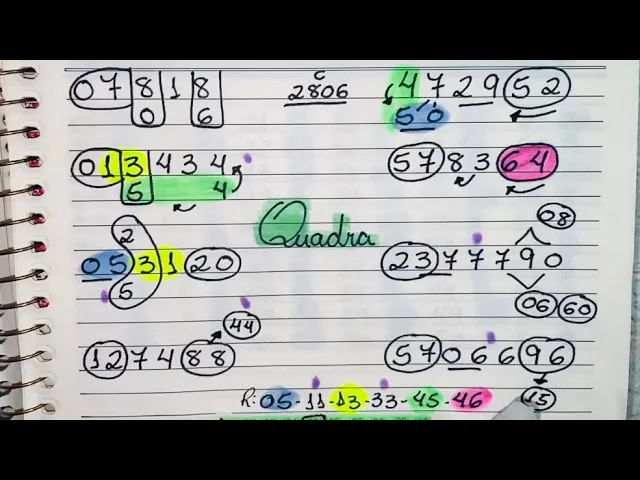 07818
0 6
C
2806
472952
50
013434
5 4
578364
Quadra
2
053120
5
08
2377790
06 60
44
127488
5706696
15
R: 05-11-13-33-45-46